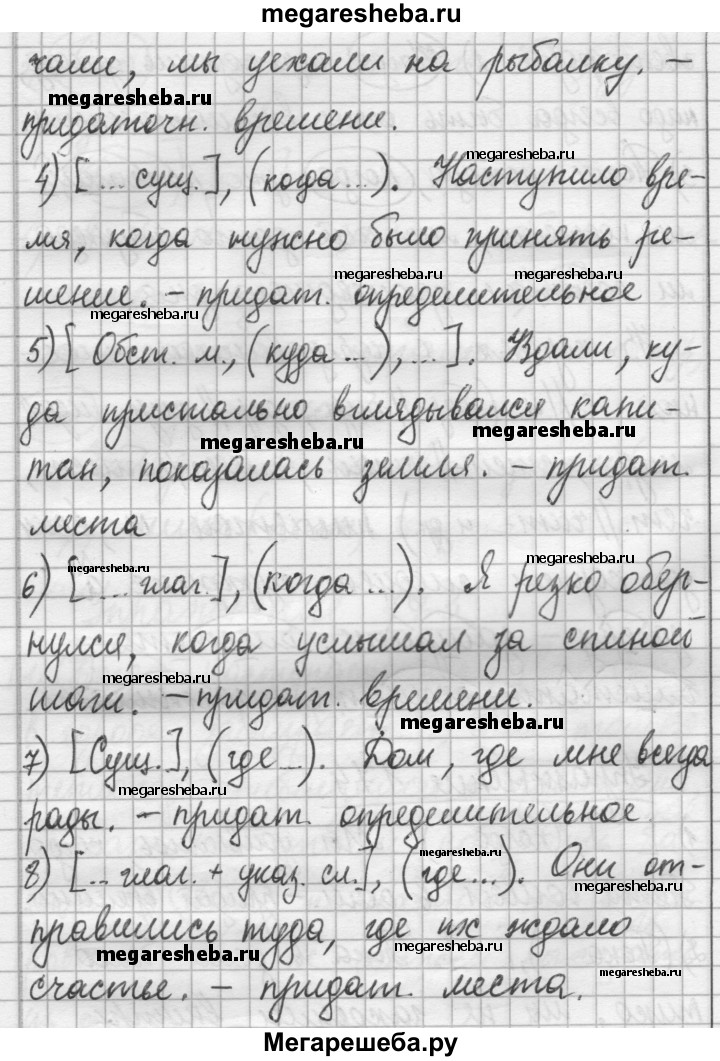 megaresheba.ru
чали, мы уехали на рыбалку. –
megaresheba.ru
megaresheba.ru
придаточн. времени.
megaresheba.ru
4) [... сущ.], (когда ...). Наступило вре-
megaresheba.ru
мя, когда нужно было принять ре-
megaresheba.ru
megaresheba.ru
шение. – придат. определительное
megaresheba.ru
5) [Обст. м., (куда ...), ...]. Вдали, ку-
да пристально вглядывался капи-
megaresheba.ru
megaresheba.ru
тан, показалась земля. – придат.
места
megaresheba.ru
megaresheba.ru
6) [... глаг.], (когда ...). Я резко обер-
нулся, когда услышал за спиной
megaresheba.ru
шаги. – придат. времени.
megaresheba.ru
7) [Сущ.], (где ...). Дом, где мне всегда
megaresheba.ru
рады. – придат. определительное.
megaresheba.ru
8) [... глаг. + указ. сл.], (где...). Они от-
megaresheba.ru
megaresheba.ru
правились туда, где их ждало
megaresheba.ru
megaresheba.ru
счастье. – придат. места.
megaresheba.ru
Мегарешеба.ру